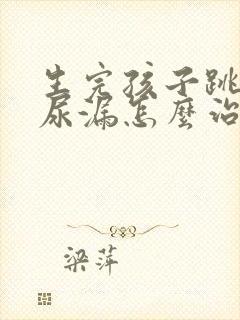 生完孩子跳
尿漏怎麼治
梁萍